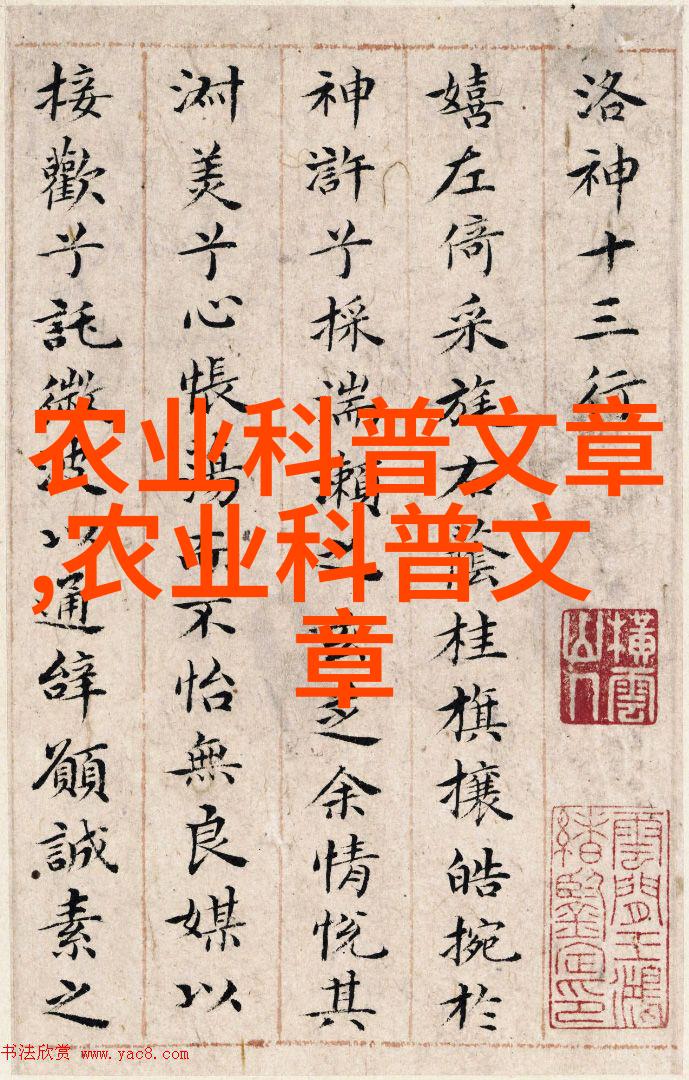 洛神十三行
嬉左倚采旄右蔭桂旗攘皓捥於
神許兮採湍瀨之玄芝余情悅其
淑美兮心悵蕩而不怡無良媒以
接歡兮託微波以通辭願誠素之
农业科普文章
,农业科普文
章
橫雲山人
雲間王鴻緒鑒定印
书法欣赏 www.yac8.com